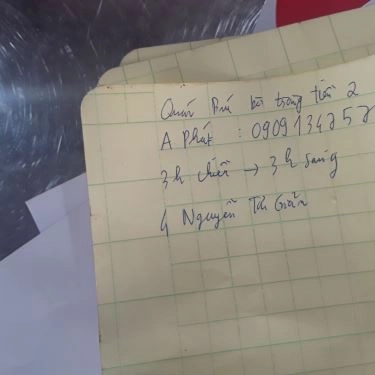 Quán Phú bò trong tiền 2
A Phát : 0909134757
3h chiều → 3h sáng
4 Nguyễn Tri Giản